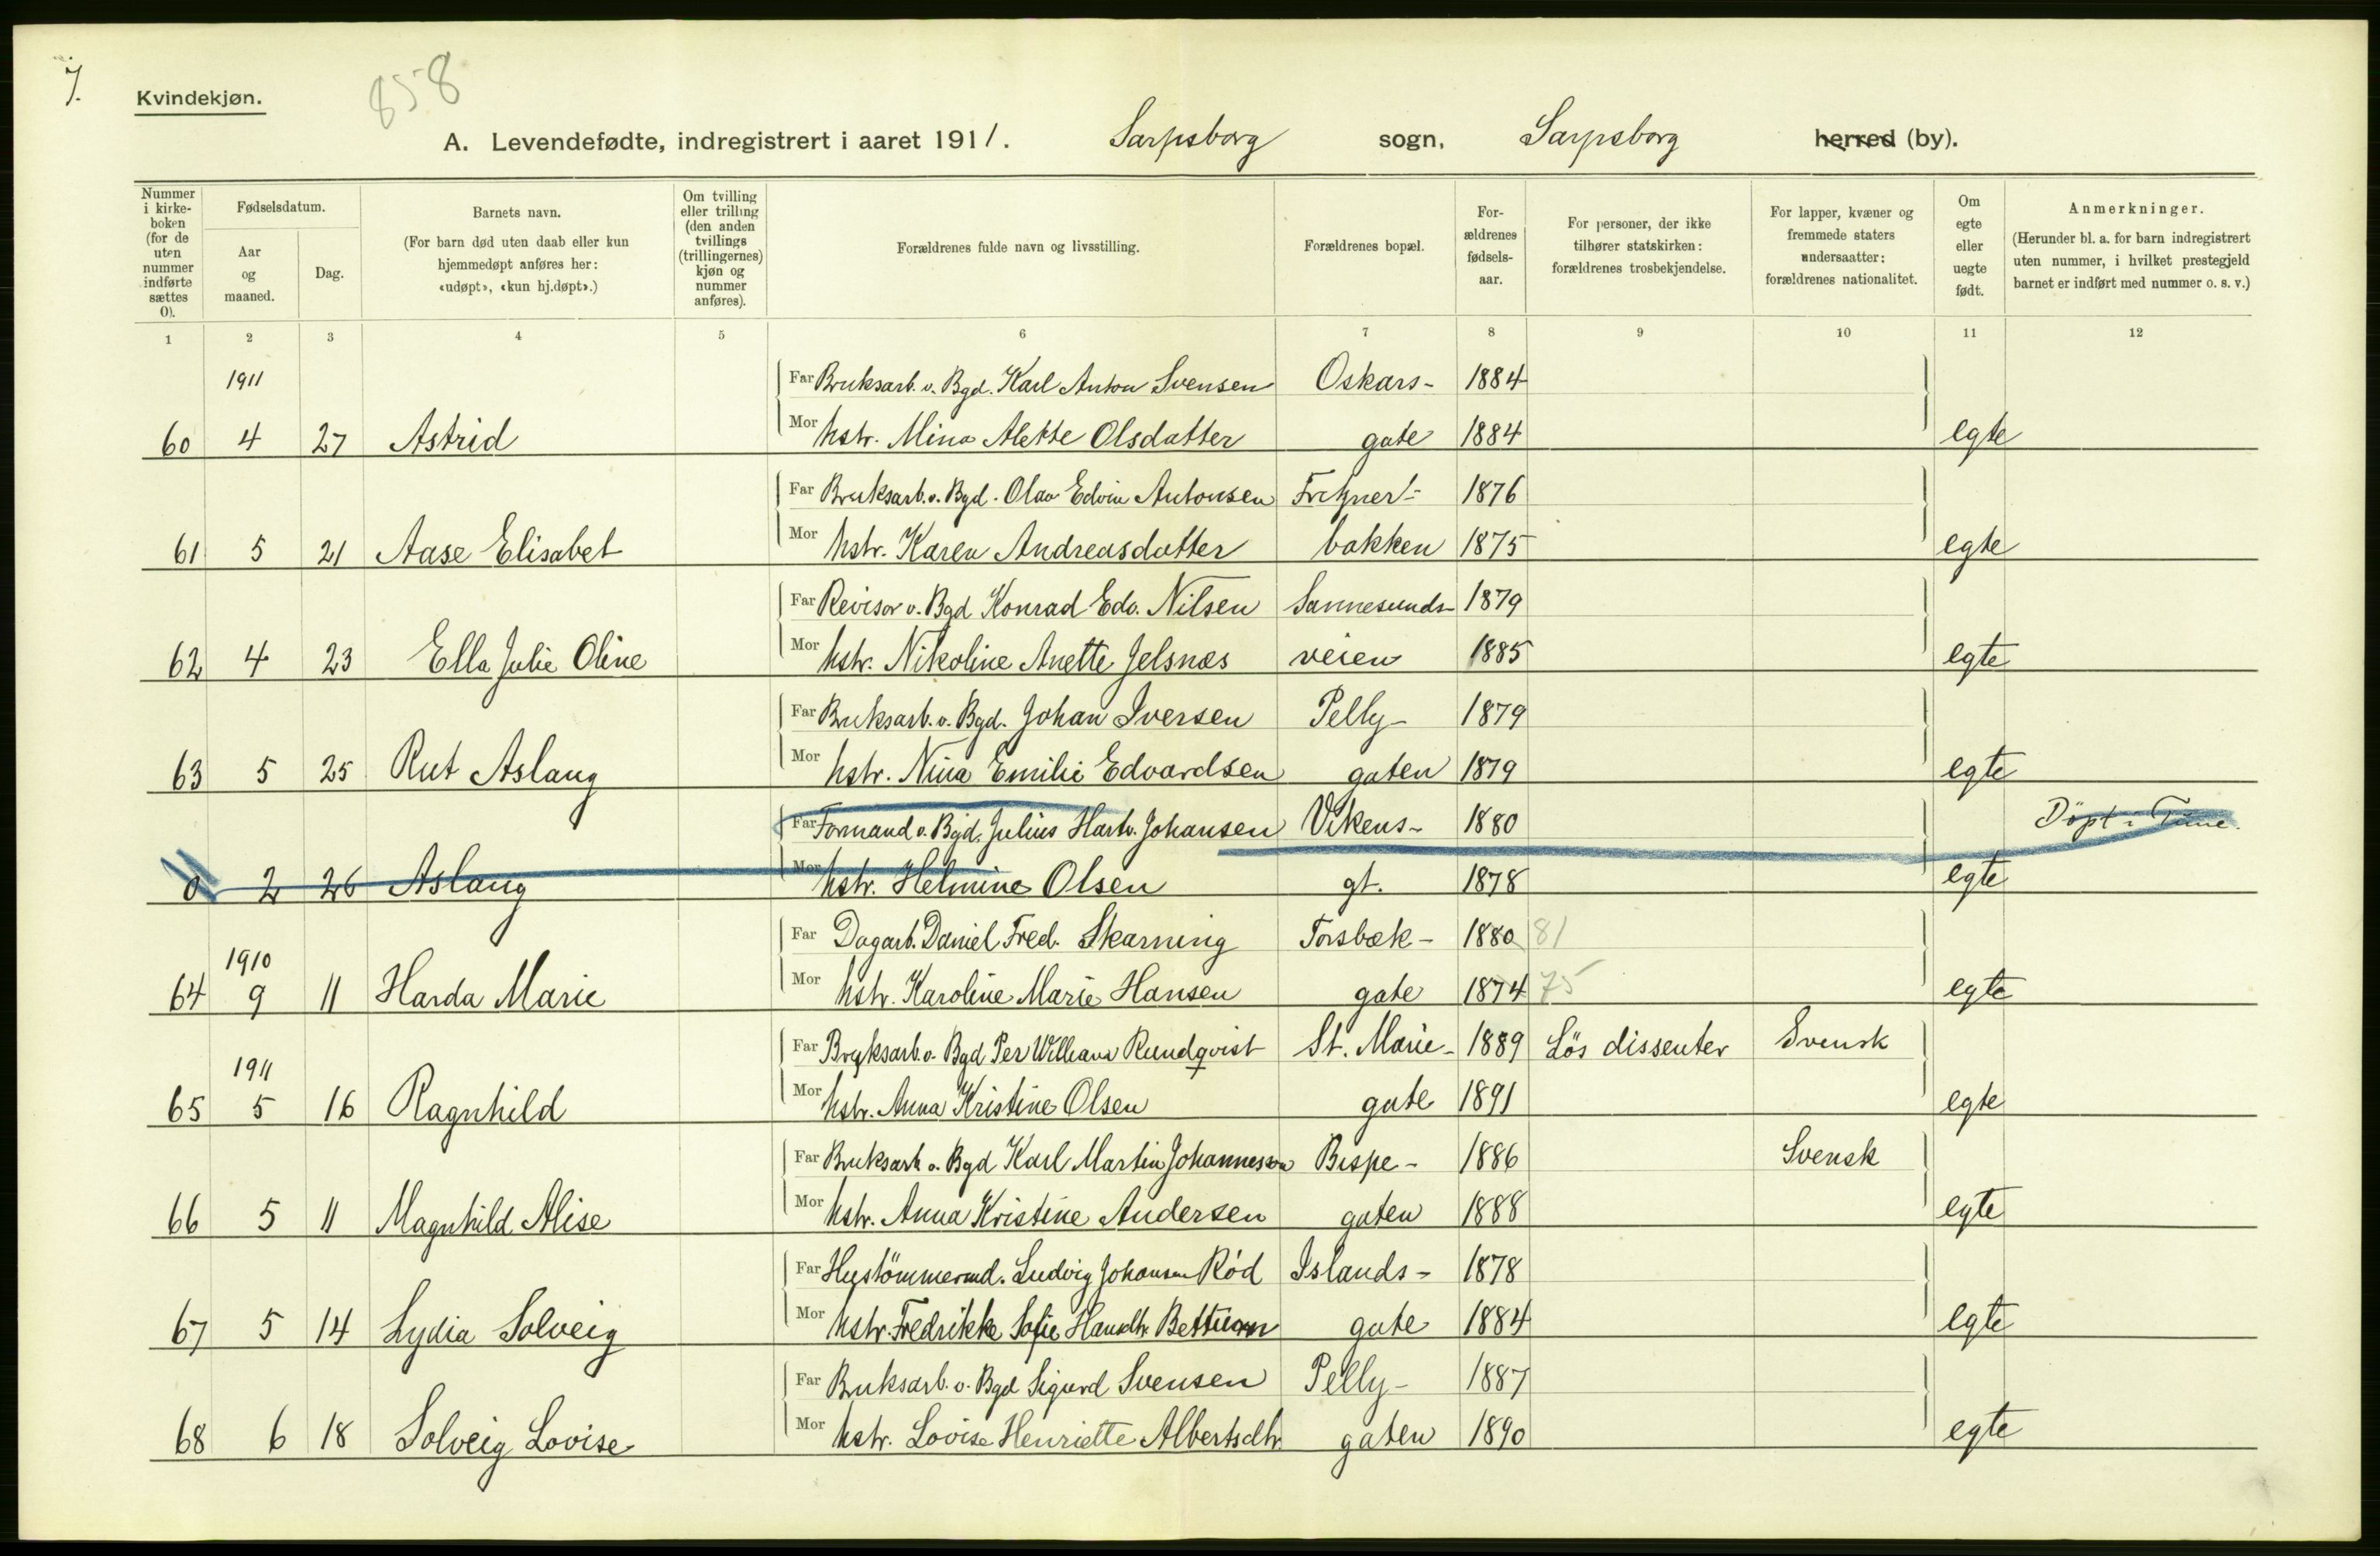 7.
Kvindekjøn.
858
A. Levendefødte, indregistrert i aaret 1911. Sarpsborg sogn, Sarpsborg herred (by).
Nummer i kirke-boken (for de uten nummer indførte sættes 0).
Fødselsdatum.
Aar og maaned.
Dag.
Barnets navn.
(For barn død uten daab eller kun hjemmedøpt anføres her: «udøpt», «kun hj.døpt».)
Om tvilling eller trilling (den anden tvillings (trillingernes) kjøn og nummer anføres).
Forældrenes fulde navn og livsstilling.
Forældrenes bopæl.
For-ældrenes fødsels-aar.
For personer, der ikke tilhører statskirken: forældrenes trosbekjendelse.
For lapper, kvæner og fremmede staters undersaatter: forældrenes nationalitet.
Om egte eller uegte født.
Anmerkninger.
(Herunder bl. a. for barn indregistrert uten nummer, i hvilket prestegjeld barnet er indført med nummer o. s. v.)
1 2 3 4 5 6 7 8 9 10 11 12
1911 Far Bruksarb. v. Bgd. Karl Anton Svensen Oskars- 1884
60 4 27 Astrid Mor Hstr. Mina Alette Olsdatter gate 1884 egte
Far Bruksarb. v. Bgd. Olav Edvin Antonsen 1876
61 5 21 Aase Elisabet Mor Hstr. Karen Andreasdatter bakken 1875 egte
Far Revisor v. Bgd Konrad Edv. Nilsen Sannesunds- 1879
62 4 23 Ella Julie Oline Mor Hstr. Nikoline Anette Jelsnæs veien 1885 egte
Far Bruksarb. v. Bgd. Johan Iversen Pelly- 1879
63 5 25 Rut Aslaug Mor Hstr. Nina Emilie Edvardsen gaten 1879 egte
Far Formand v. Bgd. Julius Hartv. Johansen Vikens- 1880 Döpt i Tune.
0 2 26 Aslaug Mor Hstr. Helmine Olsen gt. 1878 egte
Far Dagarb. Daniel Fred. Skarning Torsbæk- 1880 81
1910
64 9 11 Harda Marie Mor Hstr. Karoline Marie Hansen gate 1874 75 egte
Far Bruksarb. v. Bgd Per William Rundqvist St. Marie- 1889 Lös dissenter Svensk
1911
65 5 16 Ragnhild Mor Hstr. Anna Kristine Olsen gate 1891 egte
Far Bruksarb v. Bgd Karl Martin Johannessen Bispe- 1886 Svensk
66 5 11 Magnhild Alise Mor Hstr. Anna Kristine Andersen gaten 1888 egte
Far Hustömmermd. Ludvig Johansen Röd Islands- 1878
67 5 14 Lydia Solveig Mor Hstr. Fredrikke Sofie Hansdtr. gate 1884 egte
Far Bruksarb. v. Bgd Sigurd Svensen Pelly- 1887
68 6 18 Solveig Lovise Mor Hstr. Lovise Henriette Albertsdtr. gaten 1890 egte